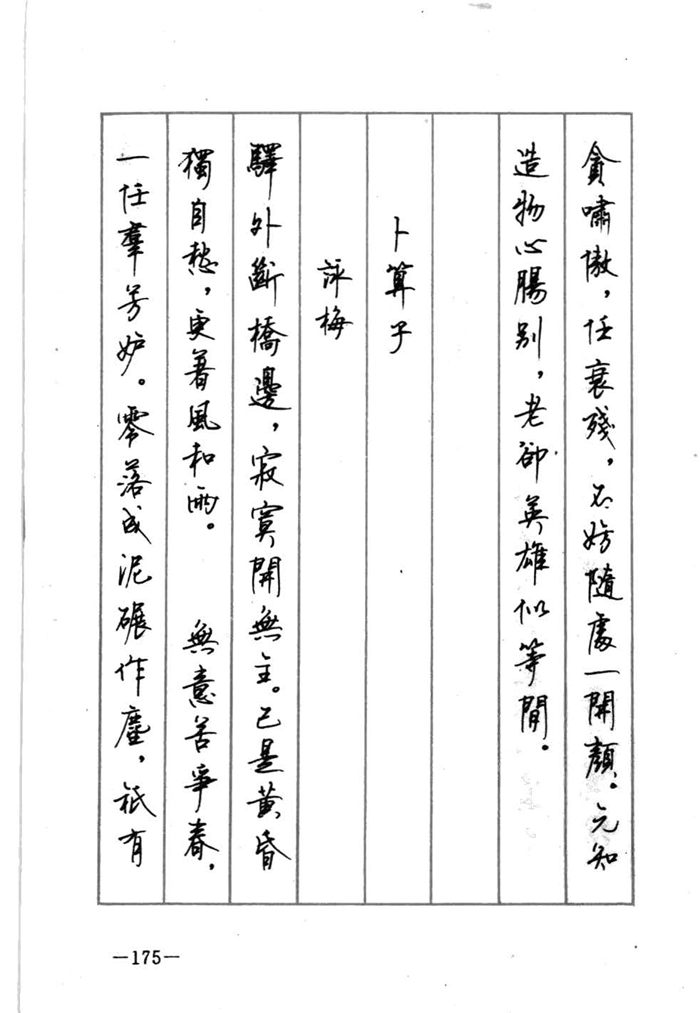 貪嘯傲，任衰殘，不妨隨處一開顏。元知
造物心腸別，老卻英雄似等閒。
卜算子
詠梅
驛外斷橋邊，寂寞開無主。已是黃昏
獨自愁，更著風和雨。 無意苦爭春，
一任羣芳妒。零落成泥碾作塵，祇有
—175—